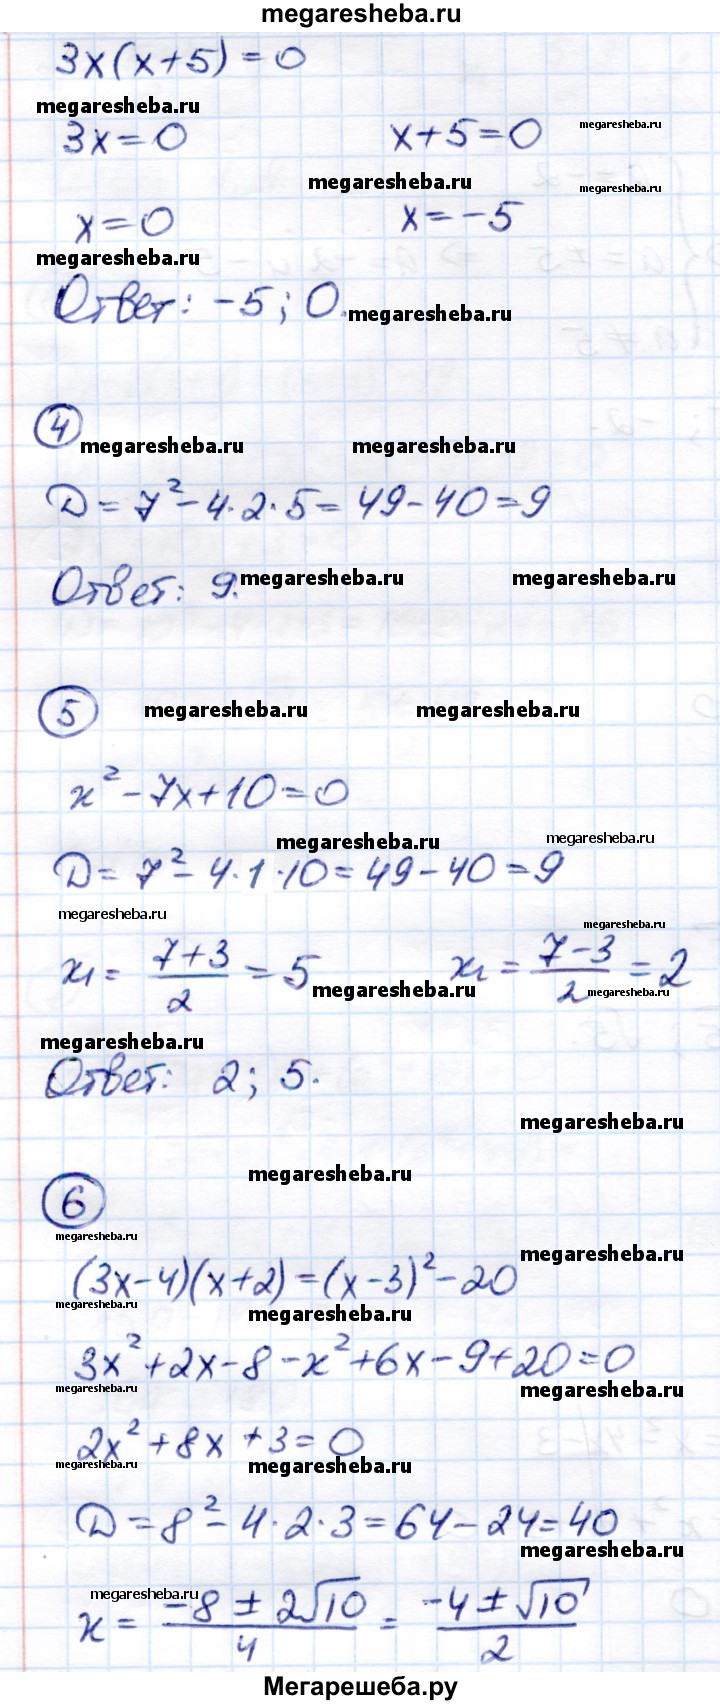 megaresheba.ru
3x(x+5)=0
megaresheba.ru
3x=0 x+5=0 megaresheba.ru
megaresheba.ru megaresheba.ru
x=0 x=-5
megaresheba.ru
Ответ: -5; 0. megaresheba.ru
4 megaresheba.ru megaresheba.ru
D=7²-4·2·5=49-40=9
Ответ: 9. megaresheba.ru megaresheba.ru
5 megaresheba.ru megaresheba.ru
x²-7x+10=0
megaresheba.ru megaresheba.ru
D=7²-4·1·10=49-40=9
megaresheba.ru megaresheba.ru
x₁=(7+3)/2=5 x₂=(7-3)/2=2
megaresheba.ru megaresheba.ru
megaresheba.ru
Ответ: 2; 5.
megaresheba.ru
megaresheba.ru
6
megaresheba.ru megaresheba.ru
(3x-4)(x+2)=(x-3)²-20
megaresheba.ru megaresheba.ru
3x²+2x-8-x²+6x-9+20=0
megaresheba.ru megaresheba.ru
2x²+8x+3=0
megaresheba.ru megaresheba.ru
D=8²-4·2·3=64-24=40
megaresheba.ru
megaresheba.ru
x=(-8±2√10)/4=(-4±√10)/2
Мегарешеба.ру